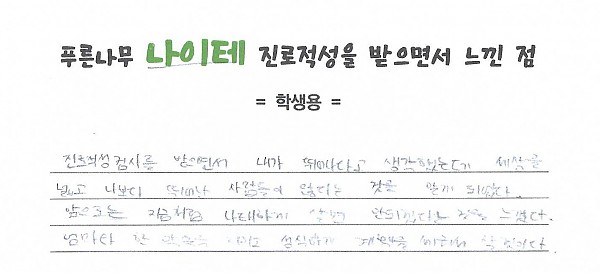 푸른나무 나이테 진로적성을 받으면서 느낀 점
= 학생용 =
진로적성검사를 받으면서 내가 뛰어나다고 생각했는데 세상은
넓고 나보다 뛰어난 사람들이 많다는 것을 알게 되었다.
앞으로는 지금처럼 나태하게 살면 안되겠다는 것을 느꼈다.
엄마랑 한 약속을 성실하게 계획을